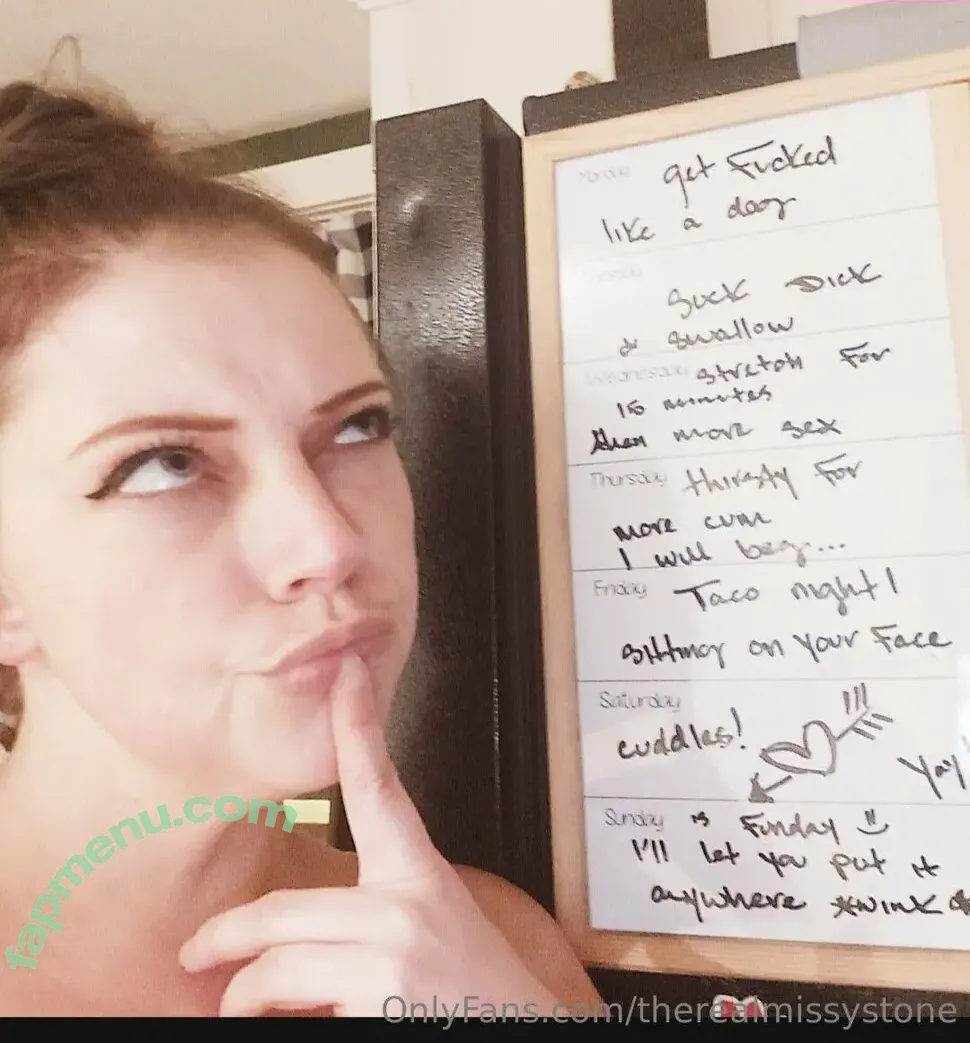 Monday get Fucked
like a dog
Tuesday
Suck Dick
& swallow
Wednesday stretch For
15 minutes
then more sex
Thursday thirsty For
more cum
I will beg...
Friday Taco night!
sitting on your Face
Saturday
cuddles!
Yay!
Sunday is Funday
I'll let you put it
anywhere *wink*
fapmenu.com
OnlyFans.com/therealmissystone